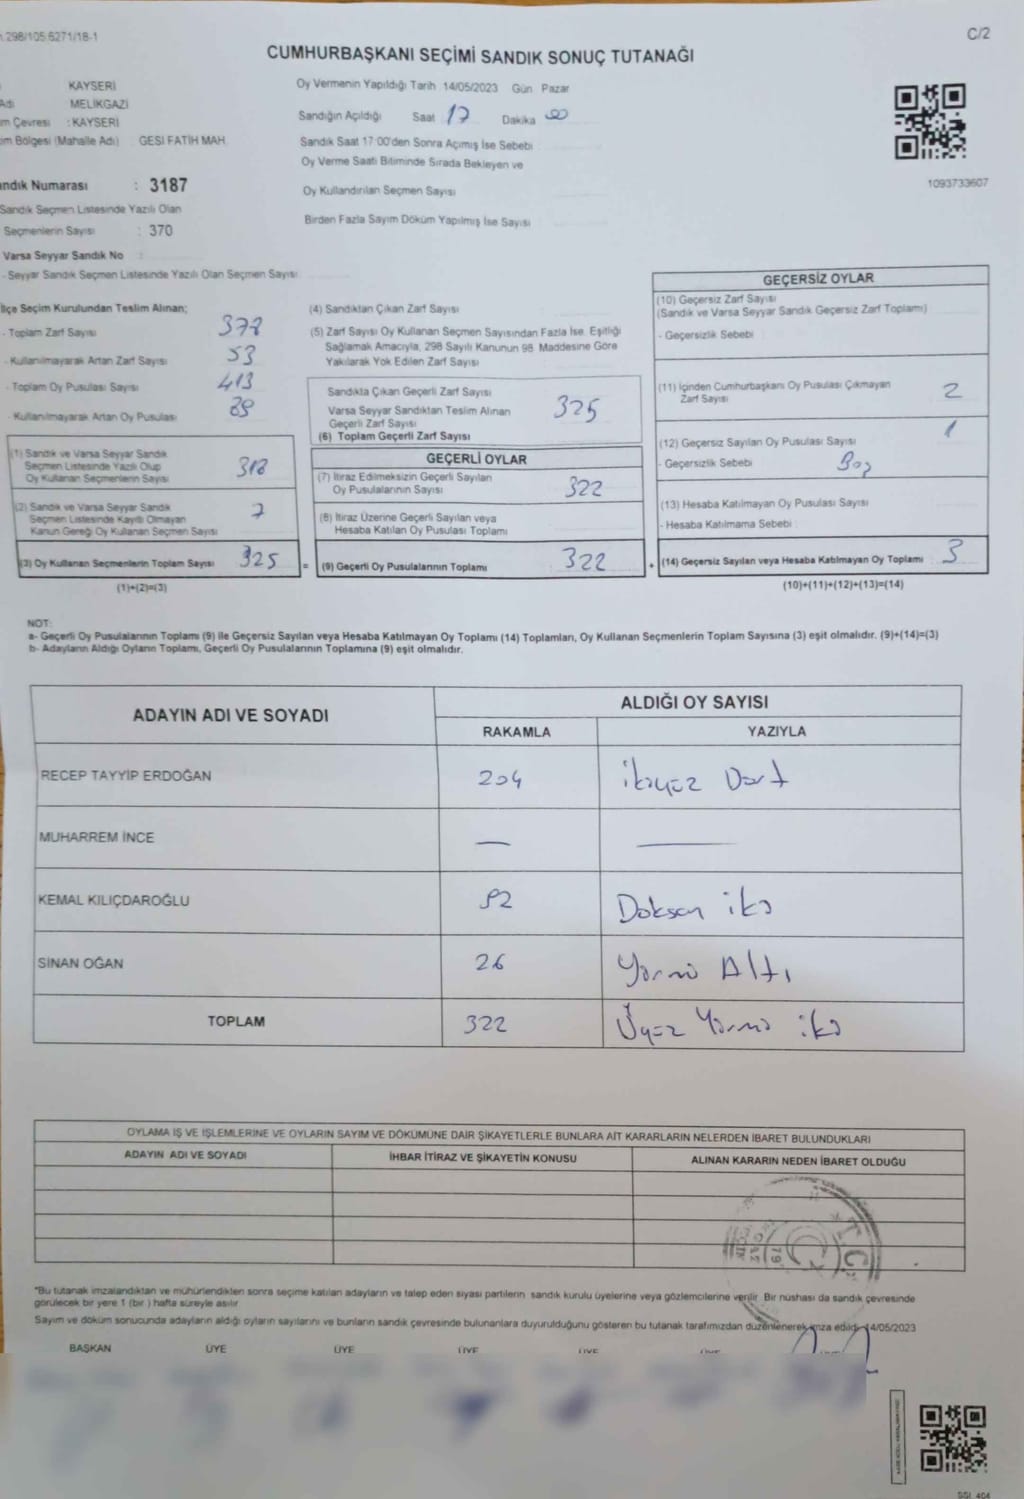 298/105.6271/18-1
C/2
CUMHURBAŞKANI SEÇİMİ SANDIK SONUÇ TUTANAĞI
KAYSERİ
MELİKGAZİ
Çevresi : KAYSERİ
Bölgesi (Mahalle Adı) : GESİ FATİH MAH.
Sandık Numarası : 3187
Sandık Seçmen Listesinde Yazılı Olan
Seçmenlerin Sayısı : 370
Varsa Seyyar Sandık No :
- Seyyar Sandık Seçmen Listesinde Yazılı Olan Seçmen Sayısı
Oy Vermenin Yapıldığı Tarih 14/05/2023 Gün Pazar
Sandığın Açıldığı Saat 17 Dakika 00
Sandık Saat 17:00'den Sonra Açımış İse Sebebi
Oy Verme Saati Bitiminde Sırada Bekleyen ve
Oy Kullandırılan Seçmen Sayısı
Birden Fazla Sayım Döküm Yapılmış İse Sayısı
1093733607
İlçe Seçim Kurulundan Teslim Alınan;
- Toplam Zarf Sayısı 378
- Kullanılmayarak Artan Zarf Sayısı 53
- Toplam Oy Pusulası Sayısı 413
- Kullanılmayarak Artan Oy Pusulası
(1) Sandık ve Varsa Seyyar Sandık
Seçmen Listesinde Yazılı Olup
Oy Kullanan Seçmenlerin Sayısı 318
(2) Sandık ve Varsa Seyyar Sandık
Seçmen Listesinde Kayıtlı Olmayan
Kanun Gereği Oy Kullanan Seçmen Sayısı 7
(3) Oy Kullanan Seçmenlerin Toplam Sayısı 325
(1)+(2)=(3)
(4) Sandıktan Çıkan Zarf Sayısı
(5) Zarf Sayısı Oy Kullanan Seçmen Sayısından Fazla İse, Eşitliği
Sağlamak Amacıyla, 298 Sayılı Kanunun 98. Maddesine Göre
Yakılarak Yok Edilen Zarf Sayısı
Sandıkta Çıkan Geçerli Zarf Sayısı
Varsa Seyyar Sandıktan Teslim Alınan
Geçerli Zarf Sayısı
(6) Toplam Geçerli Zarf Sayısı 325
GEÇERLİ OYLAR
(7) İtiraz Edilmeksizin Geçerli Sayılan
Oy Pusulalarının Sayısı 322
(8) İtiraz Üzerine Geçerli Sayılan veya
Hesaba Katılan Oy Pusulası Toplamı
= (9) Geçerli Oy Pusulalarının Toplamı 322 +
GEÇERSİZ OYLAR
(10) Geçersiz Zarf Sayısı
(Sandık ve Varsa Seyyar Sandık Geçersiz Zarf Toplamı)
- Geçersizlik Sebebi :
(11) İçinden Cumhurbaşkanı Oy Pusulası Çıkmayan
Zarf Sayısı 2
(12) Geçersiz Sayılan Oy Pusulası Sayısı 1
- Geçersizlik Sebebi
(13) Hesaba Katılmayan Oy Pusulası Sayısı
- Hesaba Katılmama Sebebi :
(14) Geçersiz Sayılan veya Hesaba Katılmayan Oy Toplamı 3
(10)+(11)+(12)+(13)=(14)
NOT:
a- Geçerli Oy Pusulalarının Toplamı (9) ile Geçersiz Sayılan veya Hesaba Katılmayan Oy Toplamı (14) Toplamları, Oy Kullanan Seçmenlerin Toplam Sayısına (3) eşit olmalıdır. (9)+(14)=(3)
b- Adayların Aldığı Oyların Toplamı, Geçerli Oy Pusulalarının Toplamına (9) eşit olmalıdır.
ADAYIN ADI VE SOYADI
ALDIĞI OY SAYISI
RAKAMLA YAZIYLA
RECEP TAYYİP ERDOĞAN 204 ikiyüz Dört
MUHARREM İNCE — —
KEMAL KILIÇDAROĞLU 92 Doksan iki
SİNAN OĞAN 26 Yirmi Altı
TOPLAM 322 Üçyüz Yirmi iki
OYLAMA İŞ VE İŞLEMLERİNE VE OYLARIN SAYIM VE DÖKÜMÜNE DAİR ŞİKAYETLERLE BUNLARA AİT KARARLARIN NELERDEN İBARET BULUNDUKLARI
ADAYIN ADI VE SOYADI İHBAR İTİRAZ VE ŞİKAYETİN KONUSU ALINAN KARARIN NEDEN İBARET OLDUĞU
T.C.
*Bu tutanak imzalandıktan ve mühürlendikten sonra seçime katılan adayların ve talep eden siyasi partilerin sandık kurulu üyelerine veya gözlemcilerine verilir. Bir nüshası da sandık çevresinde
görülecek bir yere 1 (bir ) hafta süreyle asılır.
Sayım ve döküm sonucunda adayların aldığı oyların sayılarını ve bunların sandık çevresinde bulunanlara duyurulduğunu gösteren bu tutanak tarafımızdan düzenlenerek imza edildi. 14/05/2023
BAŞKAN ÜYE ÜYE ÜYE ÜYE ÜYE